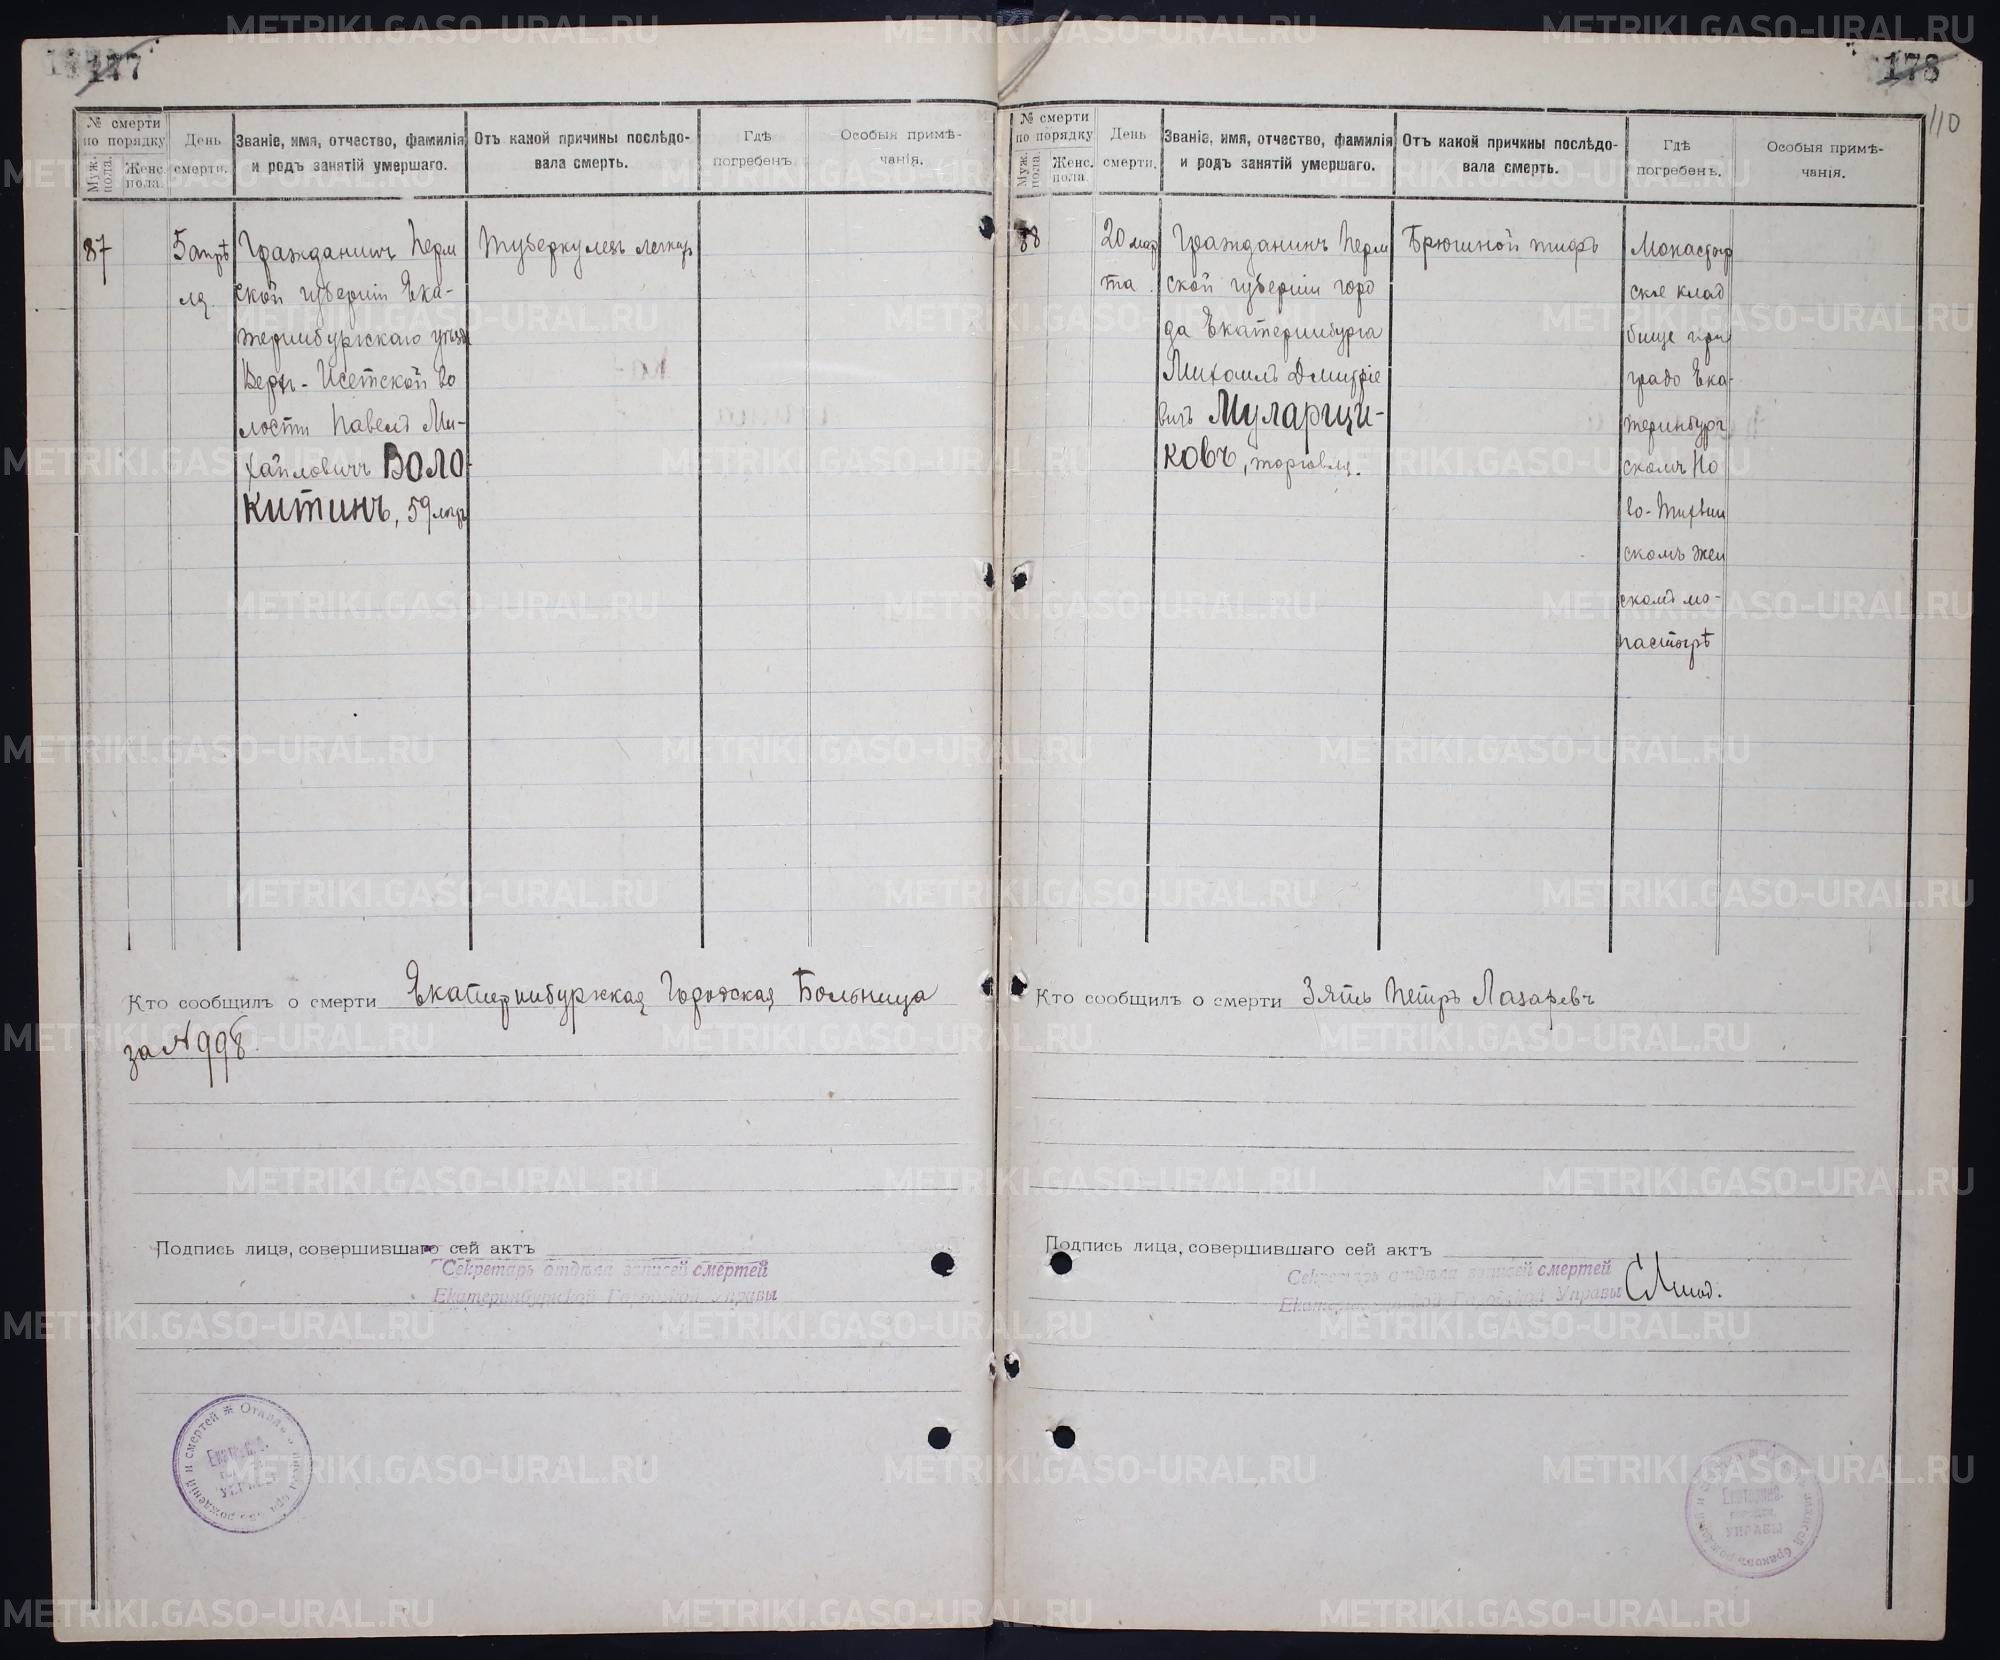 177
№ смерти
по порядку
Муж. пола.
Женс. пола.
День смерти.
Званіе, имя, отчество, фамилія
и родъ занятій умершаго.
Отъ какой причины послѣдо-
вала смерть.
Гдѣ
погребенъ.
Особыя примѣ-
чанія.
87
5 апрѣ
ля.
Гражданинъ Перм
ской губерніи Ека-
теринбургскаго уѣзда
Верхъ-Исетской во
лости Павелъ Ми-
хайловичъ Воло-
китинъ, 59 лѣтъ
Туберкулезъ легкихъ
Кто сообщилъ о смерти Екатеринбуржская Городская Больница
за № 998.
Подпись лица, совершившаго сей актъ
Секретарь отдѣла записей смертей
Екатеринбургской Городской Управы
178
110
№ смерти
по порядку
Муж. пола.
Женс. пола.
День
смерти.
Званіе, имя, отчество, фамилія
и родъ занятій умершаго.
Отъ какой причины послѣдо-
вала смерть.
Гдѣ
погребенъ.
Особыя примѣ-
чанія.
88
20 мар
та.
Гражданинъ Перм
ской губерніи горо
да Екатеринбурга
Михаилъ Дмитріе
вичъ Муларщи-
ковъ, торговля.
Брюшной тифъ
Монастыр
ское клад
бище при
градо Ека-
теринбург
скомъ Но
во-Тихвин
скомъ жен
скомъ мо-
настырѣ
Кто сообщилъ о смерти Зять Петръ Лазаревъ
Подпись лица, совершившаго сей актъ
Секретарь отдѣла записей смертей
Екатеринбургской Городской Управы
METRIKI.GASO-URAL.RU